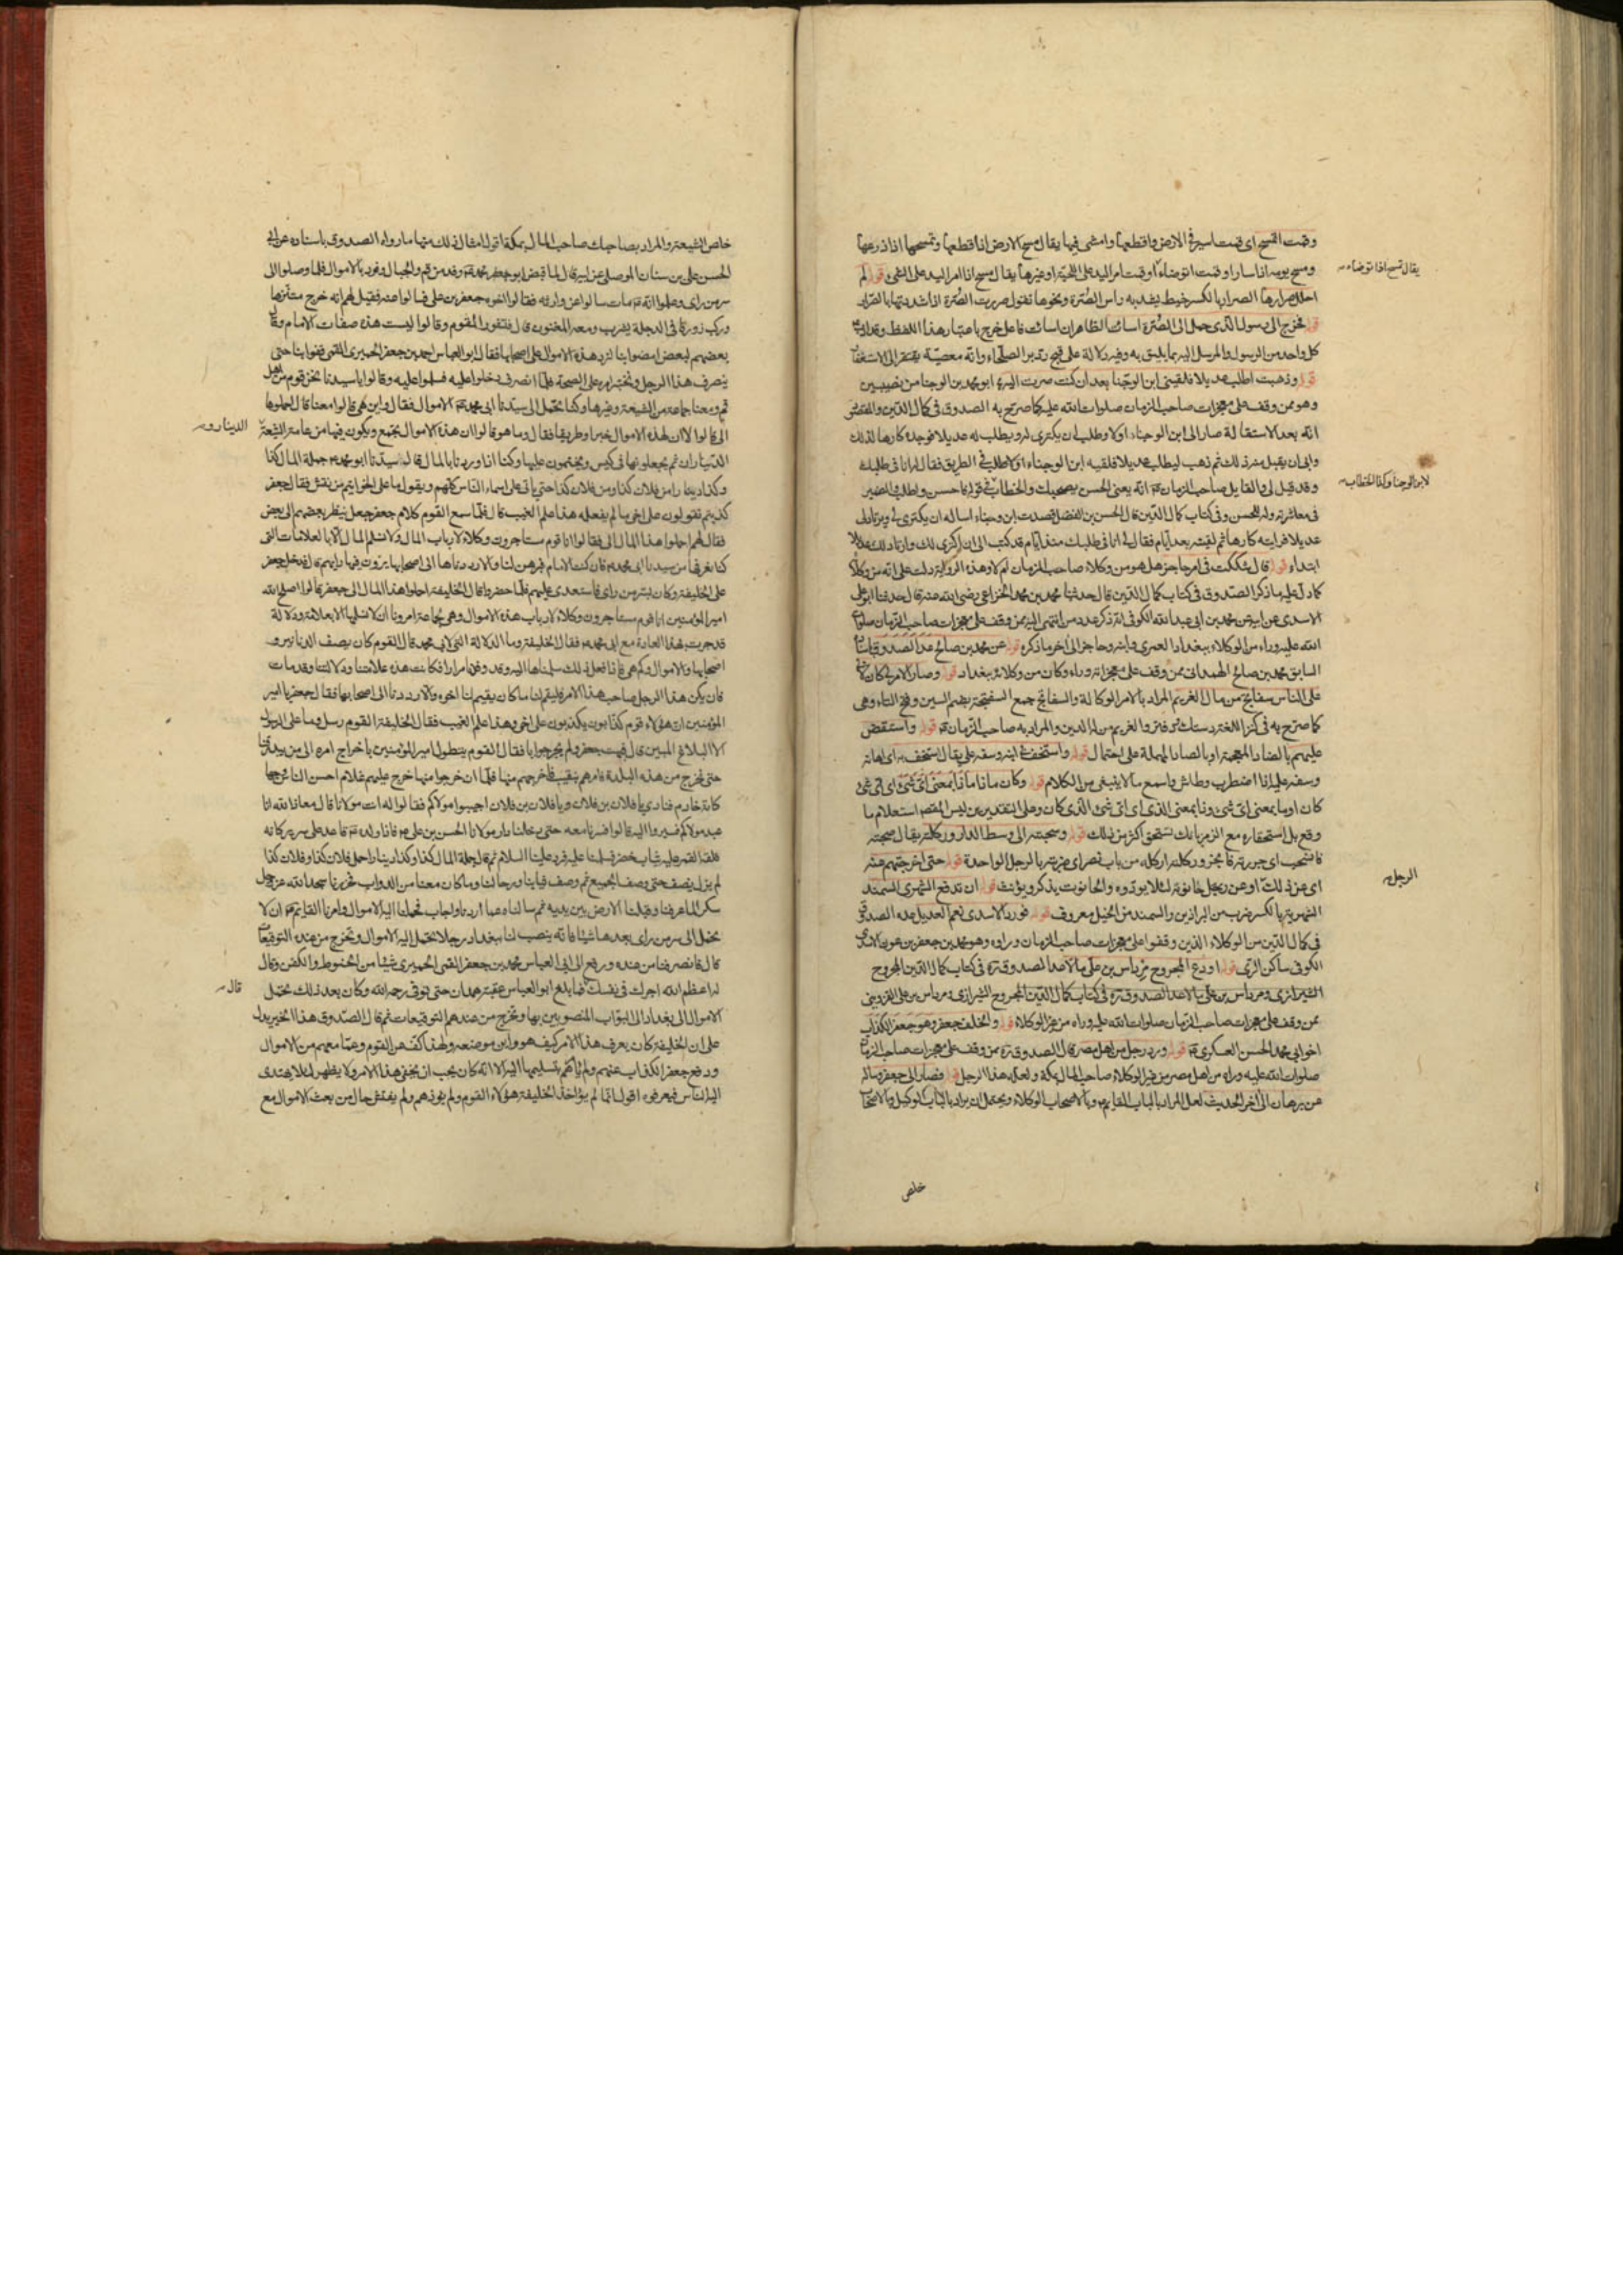 وقمت اتمسح اى قمت اسير فى الارض واقطعها وامشى فيها يقال مسح الارض اذا قطعها وتمسحها اذا ذرعها
ومسح يومه اذا سار او قمت اتوضاء او قمت امر اليد على اللحية او غيرها يقال مسح اذا امر اليد على الشى قوله لم
احلل صرارها الصرار بالكسر خيط يشد به راس الصرة ونحوها تقول صررت الصرة اذا شددتها بالصرار
قوله فخرج الى رسولى الذى حمل الى الصرة اسات الظاهر ان اسات فاعل خرج باعتبار هذا اللفظ وقد
كل واحد من الرسول والمرسل اليه بما يليق به وفيه دلالة على قبح رد بر الصلحاء وانه معصية يفتقر الى الاستغفار
قوله وذهبت اطلب عديلا فلقينى ابن الوجنا بعد ان كنت صرت اليه ابو محمد بن الوجنا من نصيبين
وهو ممن وقف على معجزات صاحب الزمان صلوات الله عليه كما صرح به الصدوق فى كمال الدين والمقصود
انه بعد الاستقالة صار الى ابن الوجناء اولا وطلب ان يكترى له ويطلب له عديلا فوجده كارها لذلك
وابى ان يقبل منه ذلك ثم ذهب ليطلب عديلا فلقيه ابن الوجناء فى الطريق فقال له انا فى طلبك
وقد قيل لى والقايل صاحب الزمان انه يعنى الحسن يصحبك والخطاب فى قوله فاحسن واطلب
فى معاشرته وله للحسن وفى كتاب كمال الدين قال الحسن بن الفضل قصدت ابن وجناء اساله ان يكترى لى ويرتاد لى
عديلا فرايته كارها ثم لقيته بعد ايام فقال لى انا فى طلبك منذ ايام قد كتب الى ان اكترى لك وارتاد لك عديلا
ابتداء قوله قال شككت فى امر حاجز هل هو من وكلاء صاحب الزمان ام لا وهذه الرواية دلت على انه من وكلائه
كما دل عليه ما ذكره الصدوق فى كتاب كمال الدين قال حدثنا محمد بن محمد الخزاعى رضى الله عنه قال حدثنا ابو على
الاسدى عن ابيه عن محمد بن ابى عبد الله الكوفى انه ذكر عدد من انتهى اليه ممن وقف على معجزات صاحب الزمان صلوات
الله عليه وراه من الوكلاء ببغداد العمرى وابنه وحاجز الى آخر ما ذكره قوله عن محمد بن صالح عد الصدوق
السابق محمد بن صالح الهمدانى ممن وقف على معجزاته وراه وكان من وكلائه ببغداد قوله وصار الامر لى كان لابى
على الناس سفاتج من مال الغريم المراد بالامر الوكالة والسفاتج جمع السفتجة بضم السين وفتح التاء وهى
كما صرح به فى كنز اللغة والغريم من له الدين والمراد به صاحب الزمان قوله واستقض
عليهم بالضاد المعجمة او بالصاد المهملة على احتمال قوله واستخف بى ابنه وسفه على يقال استخف به اى اهانه
وسفه عليه اذا اضطرب وطاش واسمع ما لا ينبغى من الكلام قوله وكان ماذا ماذا بمعنى اى شئ اى اى شئ
كان او ما بمعنى اى شئ وذا بمعنى الذى اى اى شئ الذى كان وعلى التقديرين ليس المقصود استعلام ما
وقع بل استحقاره مع الزجر بانك تستحق اكثر من ذلك قوله وسحبته الى وسط الدار وركلته يقال سحبته
فانسحب اى جررته فانجر وركلته اركله من باب نصر اى ضربته بالرجل الواحدة قوله حتى اخرجتهم عنه
اى عن ذلك او عن رجل حانوته لئلا يوذوه والحانوت يذكر ويؤنث قوله ان تدفع الشهرى السمند
الشهرية بالكسر ضرب من البراذين والسمند من الخيل معروف قوله فورد الاسدى نعم العديل عده الصدوق
فى كمال الدين من الوكلاء الذين وقفوا على معجزات صاحب الزمان وراوه وهو محمد بن جعفر بن عون الاسدى
الكوفى ساكن الرى قوله اودع المجروح مرداس بن على مالا عد الصدوق ره فى كتاب كمال الدين المجروح
الشيرازى ومرداس بن على مالا عد الصدوق ره فى كتاب كمال الدين المجروح الشيرازى ومرداس بن على القزوينى
ممن وقف على معجزات صاحب الزمان صلوات الله عليه وراه من غير الوكلاء قوله والخلف جعفر وهو جعفر الكذاب
اخو ابى محمد الحسن العسكرى قوله ورد رجل من اهل مصر قال الصدوق ره ممن وقف على معجزات صاحب الزمان
صلوات الله عليه وراه من اهل مصر من غير الوكلاء صاحب المال بمكة ولعله هذا الرجل قوله فصار الى جعفر وساله
عن برهان الى آخر الحديث لعل المراد بالباب القايم وبالاصحاب الوكلاء ويحتمل ان يراد بالباب الوكيل وبالاصحاب
يقال تمسح اذا توضاء
لابن الوجنا وكذا الخطاب
الرجل
خلص
خلص الشيعة والمراد بصاحبك صاحب المال بمكة اقول امثال ذلك منها ما رواه الصدوق باسناده عن ابى
الحسن على بن سنان الموصلى عن ابيه قال لما قبض ابو محمد وفد من قم والجبال وفود بالاموال فلما وصلوا الى
سر من راى وعلموا انه مات سالوا عن وارثه فقالوا اخوه جعفر بن على فسالوا عنه فقيل لهم انه خرج متنزها
وركب زورقا فى الدجلة يشرب ومعه المغنون قال فتشور القوم وقالوا ليست هذه صفات الامام وقال
بعضهم لبعض امضوا بنا لنرد هذه الاموال على اصحابها فقال ابو العباس احمد بن جعفر الحميرى القمى قفوا بنا حتى
ينصرف هذا الرجل ونختبر امره على الصحة فلما انصرف دخلوا عليه فسلموا عليه وقالوا يا سيدنا نحن قوم من اهل
قم ومعنا جماعة من الشيعة وغيرها وكنا نحمل الى سيدنا ابى محمد الاموال فقال واين هى قالوا معنا قال احملوها
الى قالوا لا ان لهذه الاموال خبرا وطريقا فقال وما هو قالوا ان هذه الاموال تجمع ويكون فيها من عامة الشيعة
الديناران ثم يجعلونها فى كيس ويختمون عليها وكنا اذا وردنا بالمال قال سيدنا ابو محمد جملة المال كذا
وكذا دينارا من فلان كذا ومن فلان كذا حتى ياتى على اسماء الناس كلهم ويقول ما على الخواتيم من نقش فقال جعفر
كذبتم تقولون على اخى ما لم يفعله هذا علم الغيب قال فلما سمع القوم كلام جعفر جعل ينظر بعضهم الى بعض
فقال لهم احملوا هذا المال الى فقالوا انا قوم مستاجرون وكلاء لارباب المال ولا نسلم المال الا بالعلامات التى
كنا نعرفها من سيدنا ابى محمد فان كنت الامام فبرهن لنا والا رددناها الى اصحابها يرون فيها رايهم قال فدخل جعفر
على الخليفة وكان بسر من راى فاستعدى عليهم فلما حضروا قال الخليفة احملوا هذا المال الى جعفر قالوا اصلح الله
امير المؤمنين انا قوم مستاجرون وكلاء لارباب هذه الاموال وهى لجماعة امرونا ان لا نسلمها الا بعلامة ودلالة
قد جرت بهذا العادة مع ابى محمد فقال الخليفة وما الدلالة التى لابى محمد قال القوم كان يصف الدنانير و
اصحابها والاموال وكم هى فاذا فعل ذلك سلمناها اليه وقد وفدنا مرارا فكانت هذه علامتنا ودلالتنا وقد مات
فان يكن هذا الرجل صاحب هذا الامر فليقم لنا ما كان يقيم لنا اخوه والا رددنا الى اصحابها فقال جعفر يا امير
المؤمنين ان هؤلاء قوم كذابون يكذبون على اخى وهذا علم الغيب فقال الخليفة القوم رسل وما على الرسول
الا البلاغ المبين قال فبهت جعفر ولم يحر جوابا فقال القوم يتطول امير المؤمنين باخراج امره الى من يبدرقنا
حتى نخرج من هذه البلدة فامرهم بنقيب فاخرجهم منها فلما ان خرجوا منها خرج عليهم غلام احسن الناس وجها
كانه خادم فنادى يا فلان بن فلان ويا فلان بن فلان اجيبوا مولاكم فقالوا له انت مولانا قال معاذ الله انا
عبد مولاكم فسيروا اليه قالوا فسرنا معه حتى دخلنا دار مولانا الحسن بن على فاذا ولده قاعد على سرير كانه
فلقة القمر عليه ثياب خضر فسلمنا عليه فرد علينا السلام ثم قال جملة المال كذا وكذا دينارا حمل فلان كذا وفلان كذا
لم يزل يصف حتى وصف الجميع ثم وصف ثيابنا ورحالنا وما كان معنا من الدواب فخررنا سجدا لله عز وجل
شكرا لما عرفنا وقبلنا الارض بين يديه ثم سالناه عما اردنا واجاب فحملنا اليه الاموال وامرنا القايم ان لا
نحمل الى سر من راى بعدها شيئا فانه ينصب لنا ببغداد رجلا نحمل اليه الاموال وتخرج من عنده التوقيعات
قال فانصرفنا من عنده ودفع الى ابى العباس محمد بن جعفر القمى الحميرى شيئا من الحنوط والكفن وقال
له اعظم الله اجرك فى نفسك فما بلغ ابو العباس عقبة همدان حتى توفى رحمه الله وكان بعد ذلك تحمل
الاموال الى بغداد الى النواب المنصوبين بها وتخرج من عندهم التوقيعات ثم قال الصدوق هذا الخبر يدل
على ان الخليفة كان يعرف هذا الامر كيف هو واين موضعه ولهذا كف عن القوم وعما معهم من الاموال
ودفع جعفر الكذاب عنهم ولم يامرهم بتسليمها اليه الا انه كان يحب ان يخفى هذا الامر ولا يظهر لئلا يهتدى
اليه الناس فيعرفوه اقول انما لم يؤاخذ الخليفة هؤلاء القوم ولم يوذهم ولم يفتش حال من بعث الاموال مع
الدينار و
قال